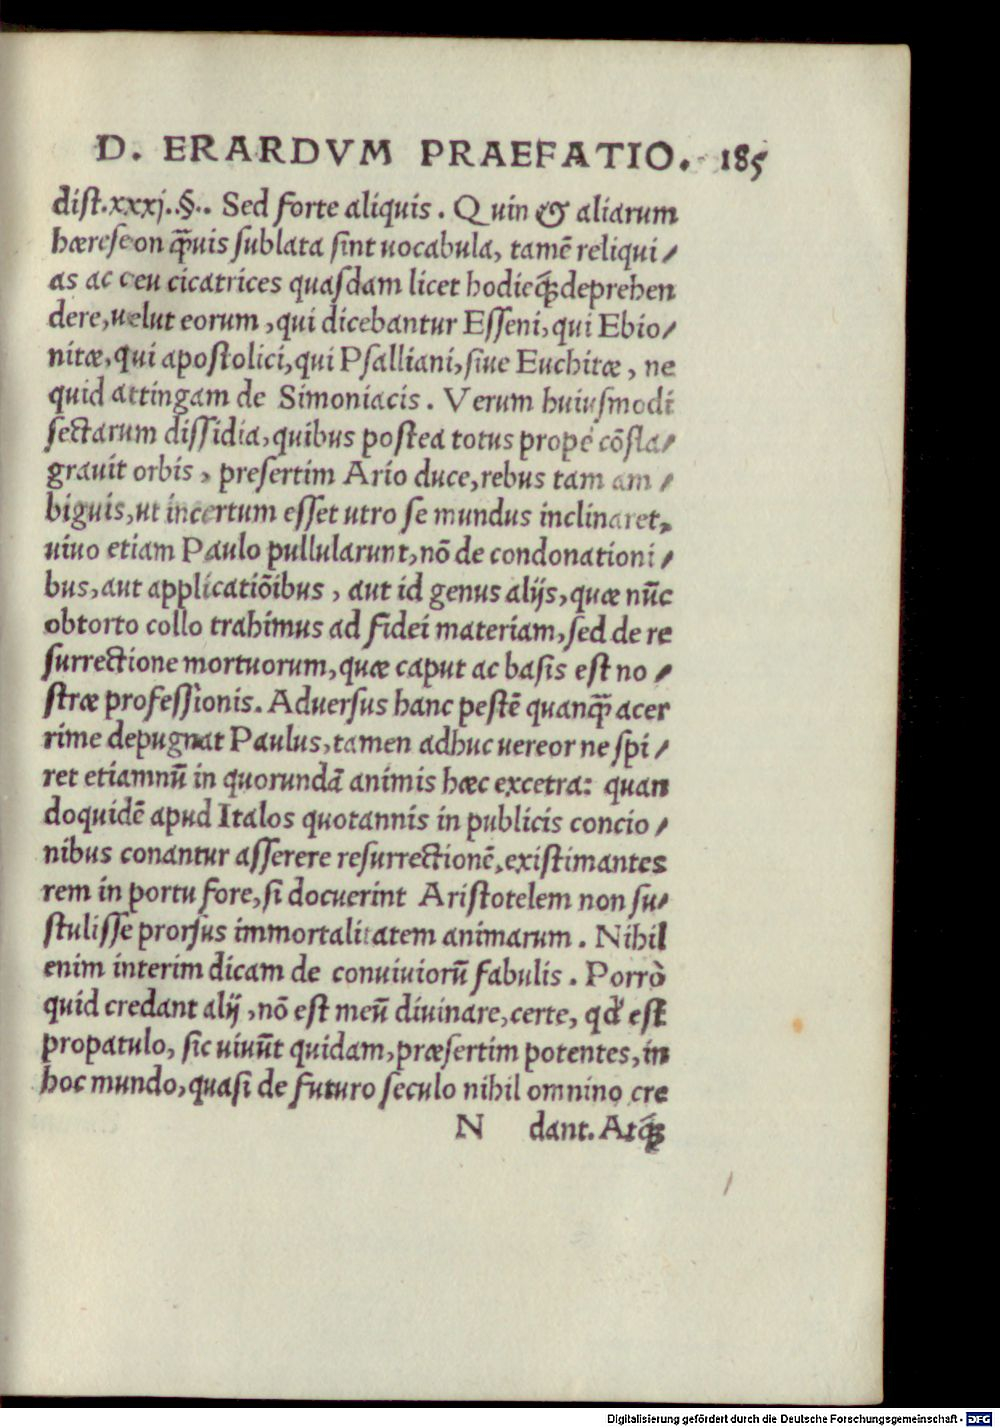 D. ERARDVM PRAEFATIO. 185
dist.xxxj..§.. Sed forte aliquis. Quin & aliarum
hæreseon q̃uis sublata sint uocabula, tamē reliqui/
as ac ceu cicatrices quasdam licet hodieq; deprehen
dere, uelut eorum, qui dicebantur Esseni, qui Ebio/
nitæ, qui apostolici, qui Psalliani, siue Euchitæ, ne
quid attingam de Simoniacis. Verum huiusmodi
sectarum dissidia, quibus postea totus propè cōfla/
grauit orbis, presertim Ario duce, rebus tam am/
biguis, ut incertum esset utro se mundus inclinaret,
uiuo etiam Paulo pullularunt, nō de condonationi/
bus, aut applicatiōibus, aut id genus alijs, quæ nūc
obtorto collo trahimus ad fidei materiam, sed de re
surrectione mortuorum, quæ caput ac basis est no/
stræ professionis. Aduersus hanc pestē quanq̃ acer
rime depugnat Paulus, tamen adhuc uereor ne spi/
ret etiamnū in quorundā animis hæc excetra: quan
doquidē apud Italos quotannis in publicis concio/
nibus conantur asserere resurrectionē, existimantes
rem in portu fore, si docuerint Aristotelem non su/
stulisse prorsus immortalitatem animarum. Nihil
enim interim dicam de conuiuiorū fabulis. Porrò
quid credant alij, nō est meū diuinare, certe, qđ est
propatulo, sic uiuūt quidam, præsertim potentes, in
hoc mundo, quasi de futuro seculo nihil omnino cre
N dant. Atq;
Digitalisierung gefördert durch die Deutsche Forschungsgemeinschaft - DFG